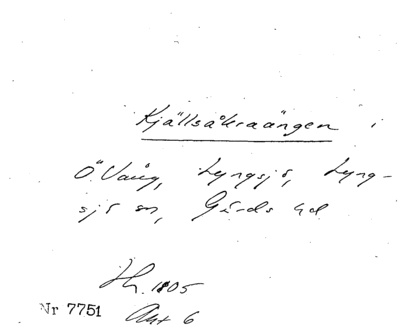 Kjällsåkraängen i
Ö. Vång, Lyngsjö, Lyng-
sjö sn, Gärds hd
Sk. 1805
Nr 7751 Akt 6